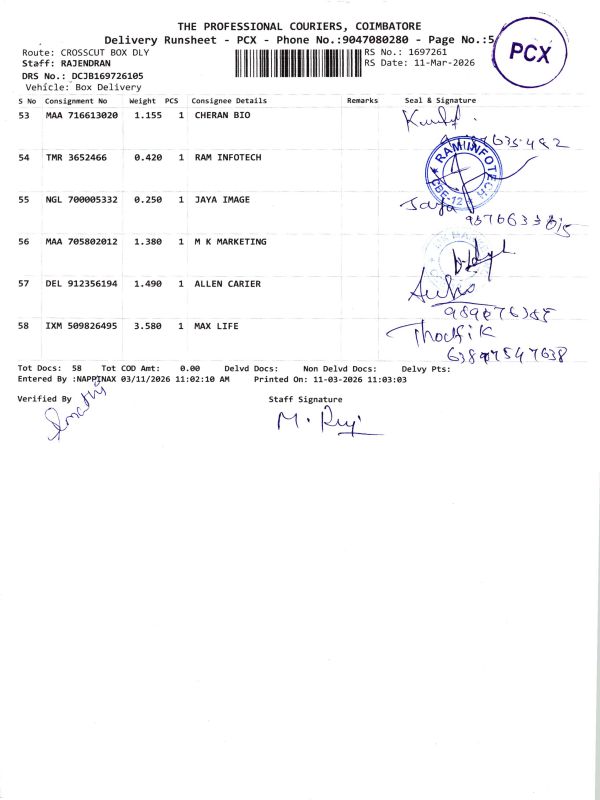 THE PROFESSIONAL COURIERS, COIMBATORE
Delivery Runsheet - PCX - Phone No.:9047080280 - Page No.:5
PCX
Route: CROSSCUT BOX DLY
RS No.: 1697261
Staff: RAJENDRAN
RS Date: 11-Mar-2026
DRS No.: DCJB169726105
Vehicle: Box Delivery
S No Consignment No Weight PCS Consignee Details Remarks Seal & Signature
53 MAA 716613020 1.155 1 CHERAN BIO
54 TMR 3652466 0.420 1 RAM INFOTECH
RAM INFOTECH
CBE-12
55 NGL 700005332 0.250 1 JAYA IMAGE
Jaya
56 MAA 705802012 1.380 1 M K MARKETING
57 DEL 912356194 1.490 1 ALLEN CARIER
58 IXM 509826495 3.580 1 MAX LIFE
Tot Docs: 58 Tot COD Amt: 0.00 Delvd Docs: Non Delvd Docs: Delvy Pts:
Entered By :NAPPINAX 03/11/2026 11:02:10 AM Printed On: 11-03-2026 11:03:03
Verified By Staff Signature